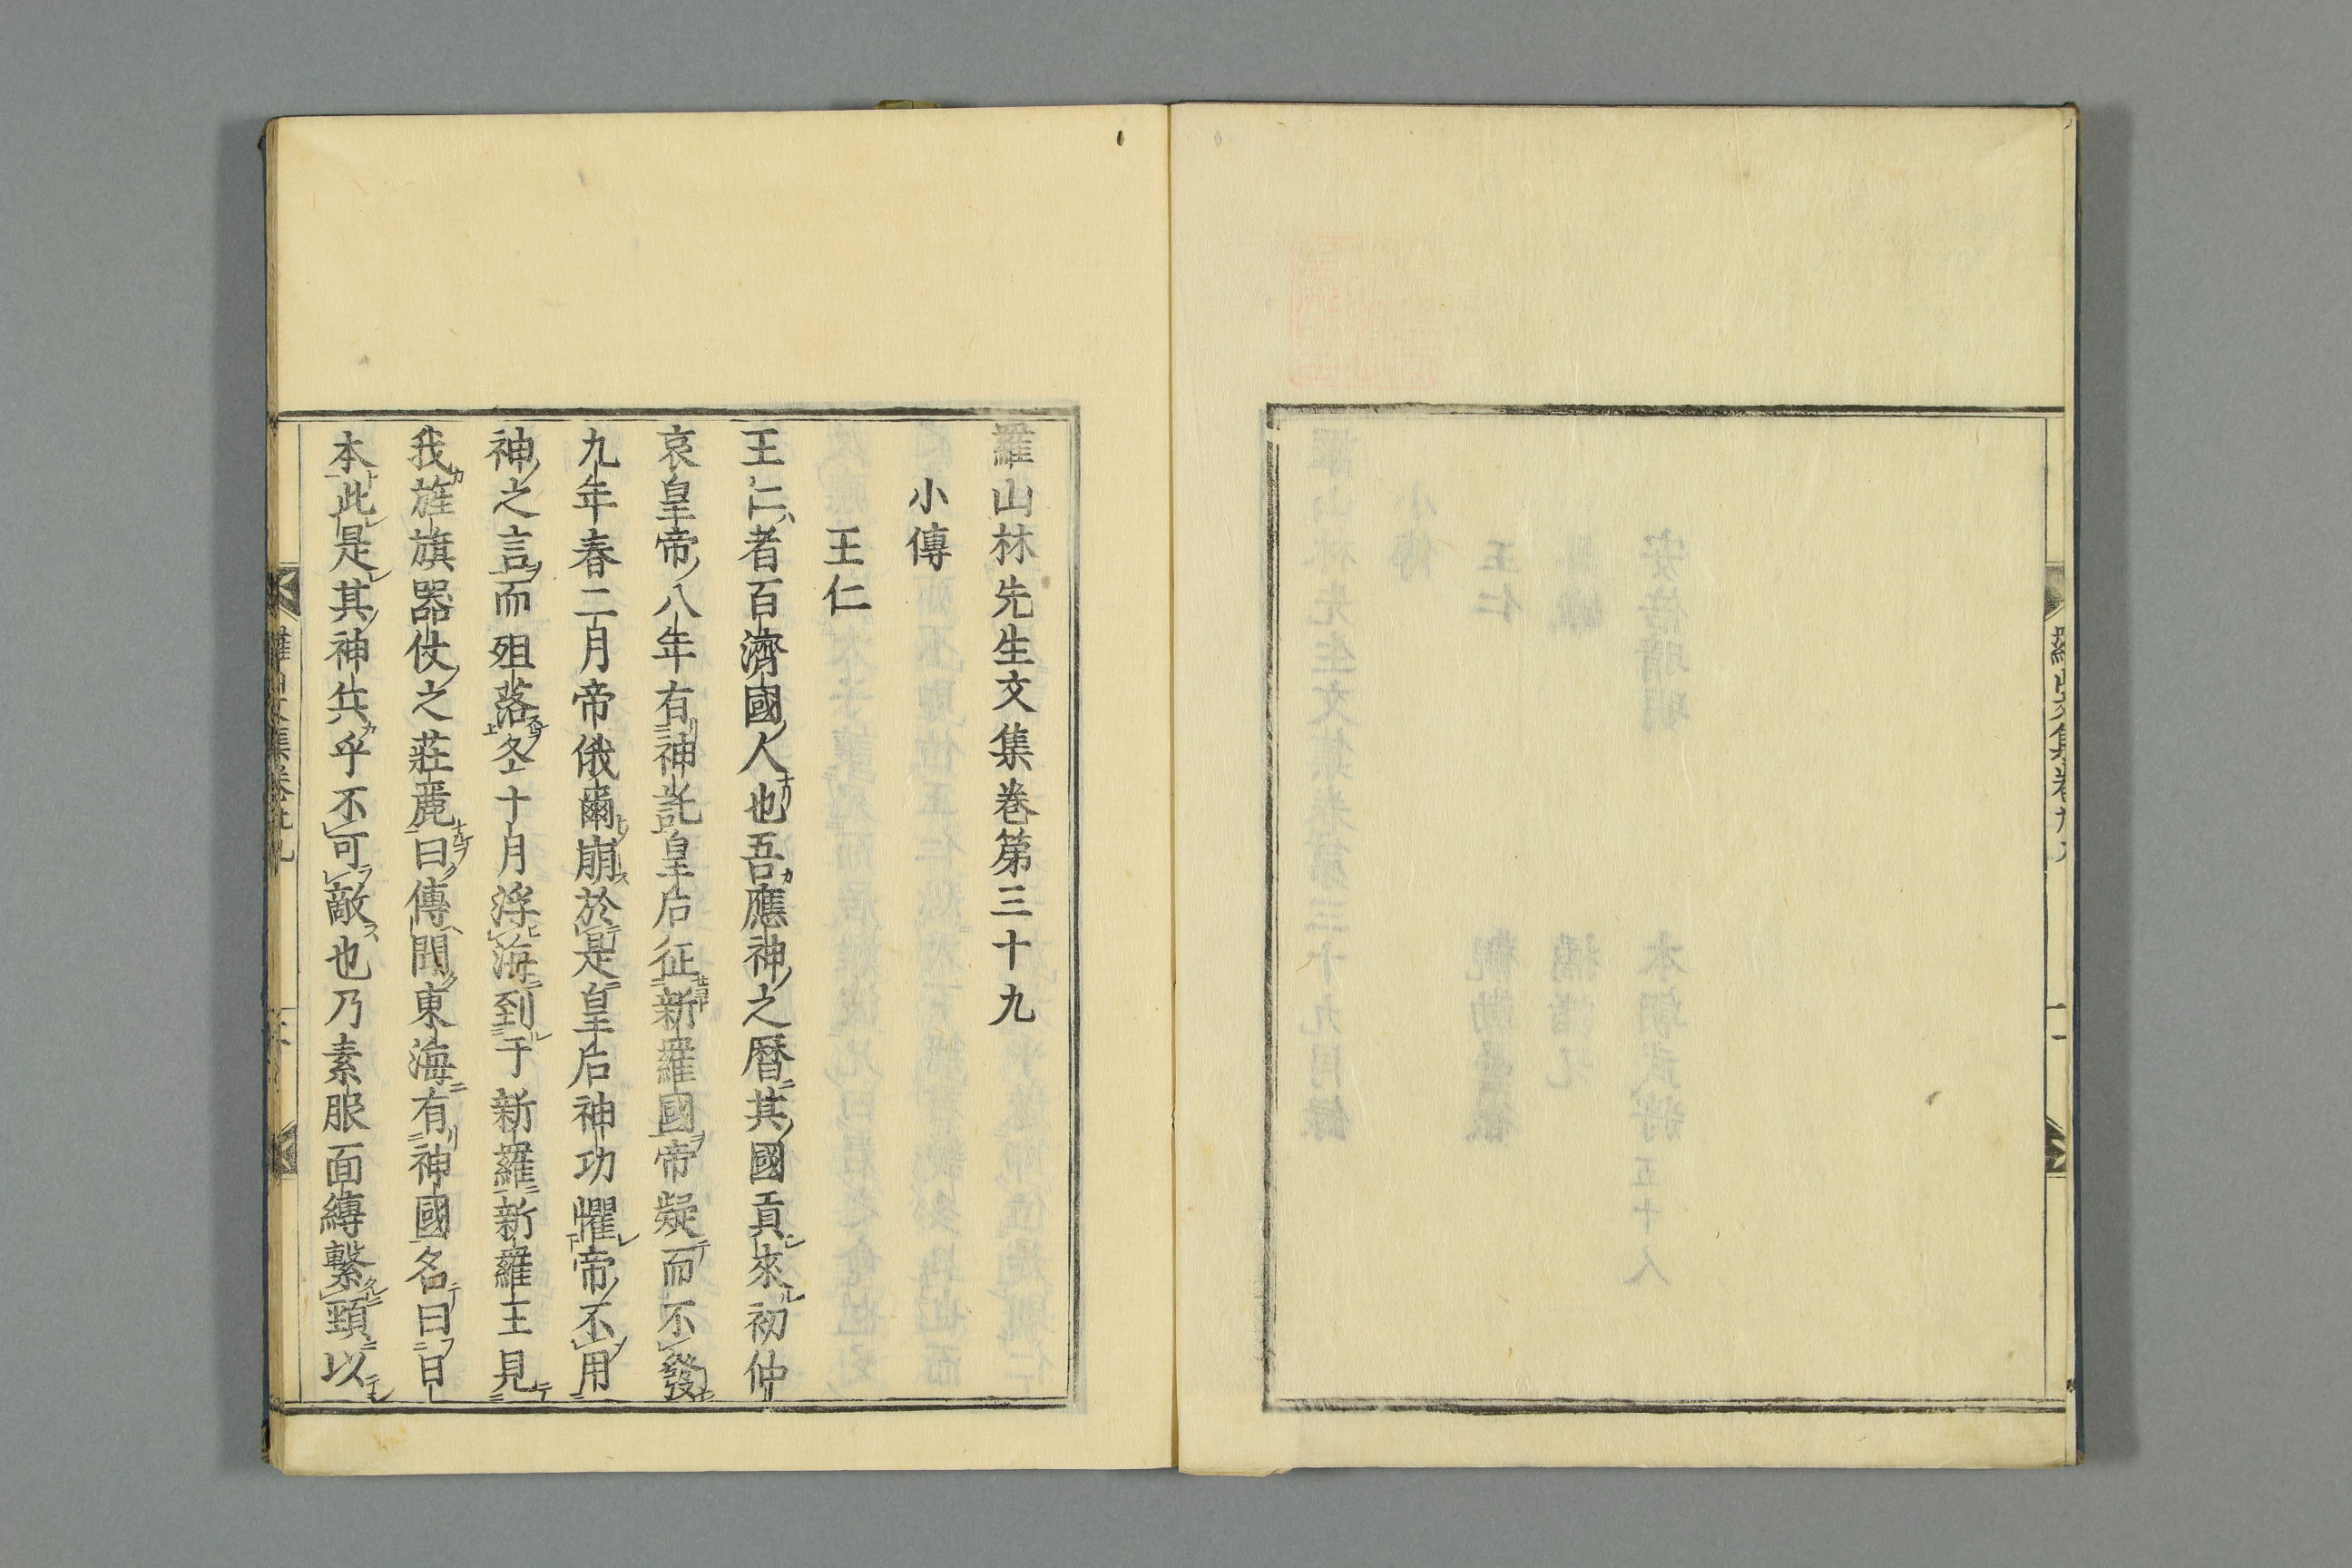 羅山林先生文集卷第三十九
小傳
王仁
王仁者百濟國人也吾應神之曆其國貢來初仲
哀皇帝八年有神託皇后征新羅國帝疑而不發
九年春二月帝俄爾崩於是皇后神功懼帝不用
神之言而殂落冬十月浮海到于新羅新羅王見
我旌旗器仗之莊麗曰傳聞東海有神國名曰日
本此是其神兵乎不可敵也乃素服面縛繫頸以